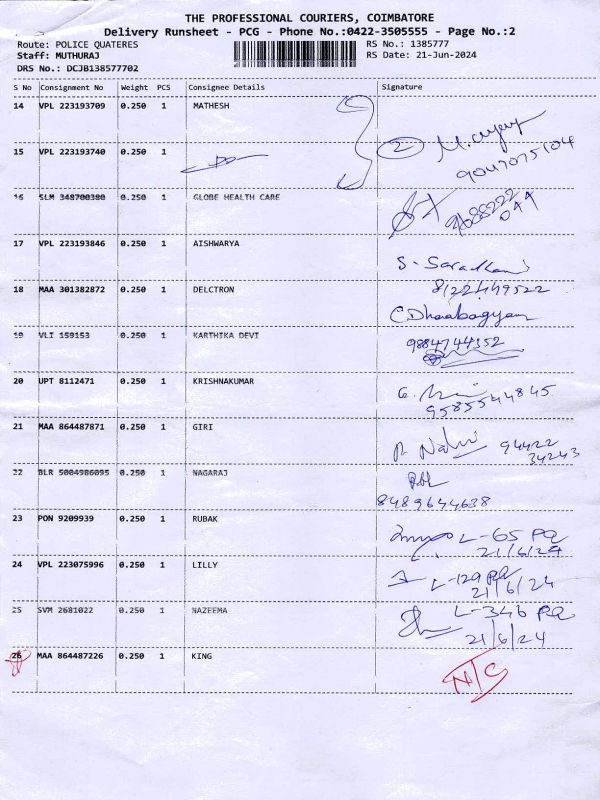 THE PROFESSIONAL COURIERS, COIMBATORE
Delivery Runsheet - PCG - Phone No.:0422-3505555 - Page No.:2
Route: POLICE QUATERES RS No.: 1385777
Staff: MUTHURAJ RS Date: 21-Jun-2024
DRS No.: DCJB138577702
S No Consignment No Weight PCS Consignee Details Signature
14 VPL 223193709 0.250 1 MATHESH
15 VPL 223193740 0.250 1
2
9047075104
16 SLM 348700380 0.250 1 GLOBE HEALTH CARE
17 VPL 223193846 0.250 1 AISHWARYA
18 MAA 301382872 0.250 1 DELCTRON 8122449522
19 VLI 159153 0.250 1 KARTHIKA DEVI 9884744352
20 UPT 8112471 0.250 1 KRISHNAKUMAR
9585544845
21 MAA 864487871 0.250 1 GIRI 94422
34243
22 BLR 5004986095 0.250 1 NAGARAJ
8489644638
23 PON 9209939 0.250 1 RUBAK L-65 PQ
21/6/24
24 VPL 223075996 0.250 1 LILLY L-129 PQ
21/6/24
25 SVM 2681022 0.250 1 NAZEEMA L-346 PQ
21/6/24
26 MAA 864487226 0.250 1 KING N/C